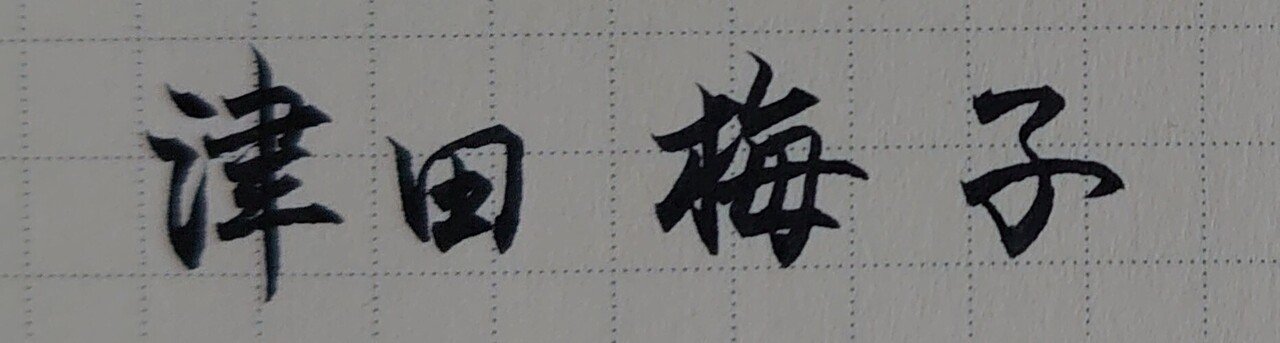 津田梅子